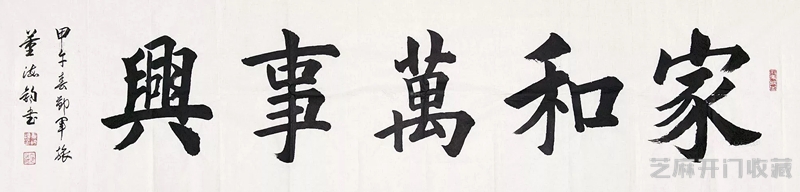 家和萬事興
甲午春鄭軍旅
董海鈞書
芝麻开门收藏